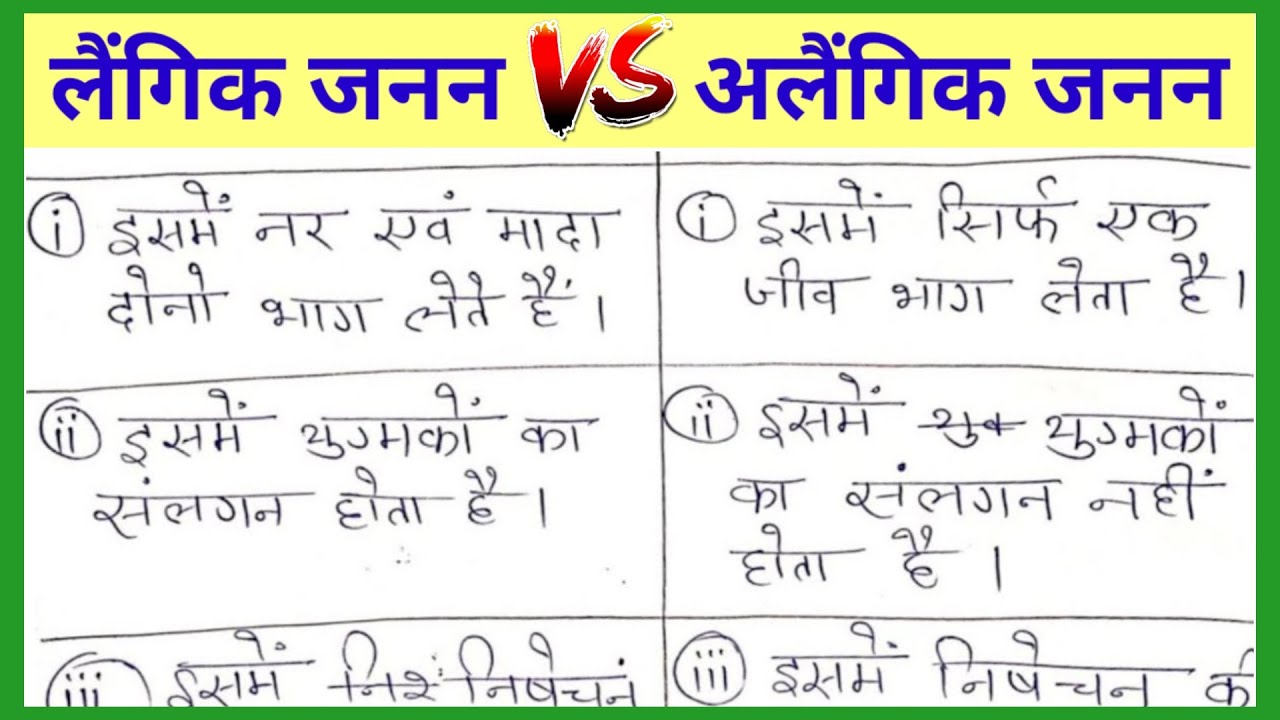 लैंगिक जनन VS अलैंगिक जनन
(i) इसमें नर एवं मादा
दोनो भाग लेते हैं।
(i) इसमें सिर्फ एक
जीव भाग लेता है।
(ii) इसमें युग्मकों का
संलगन होता है।
(ii) इसमें युग्मकों
का संलगन नहीं
होता है।
(iii) इसमें निषेचन
(iii) इसमें निषेचन